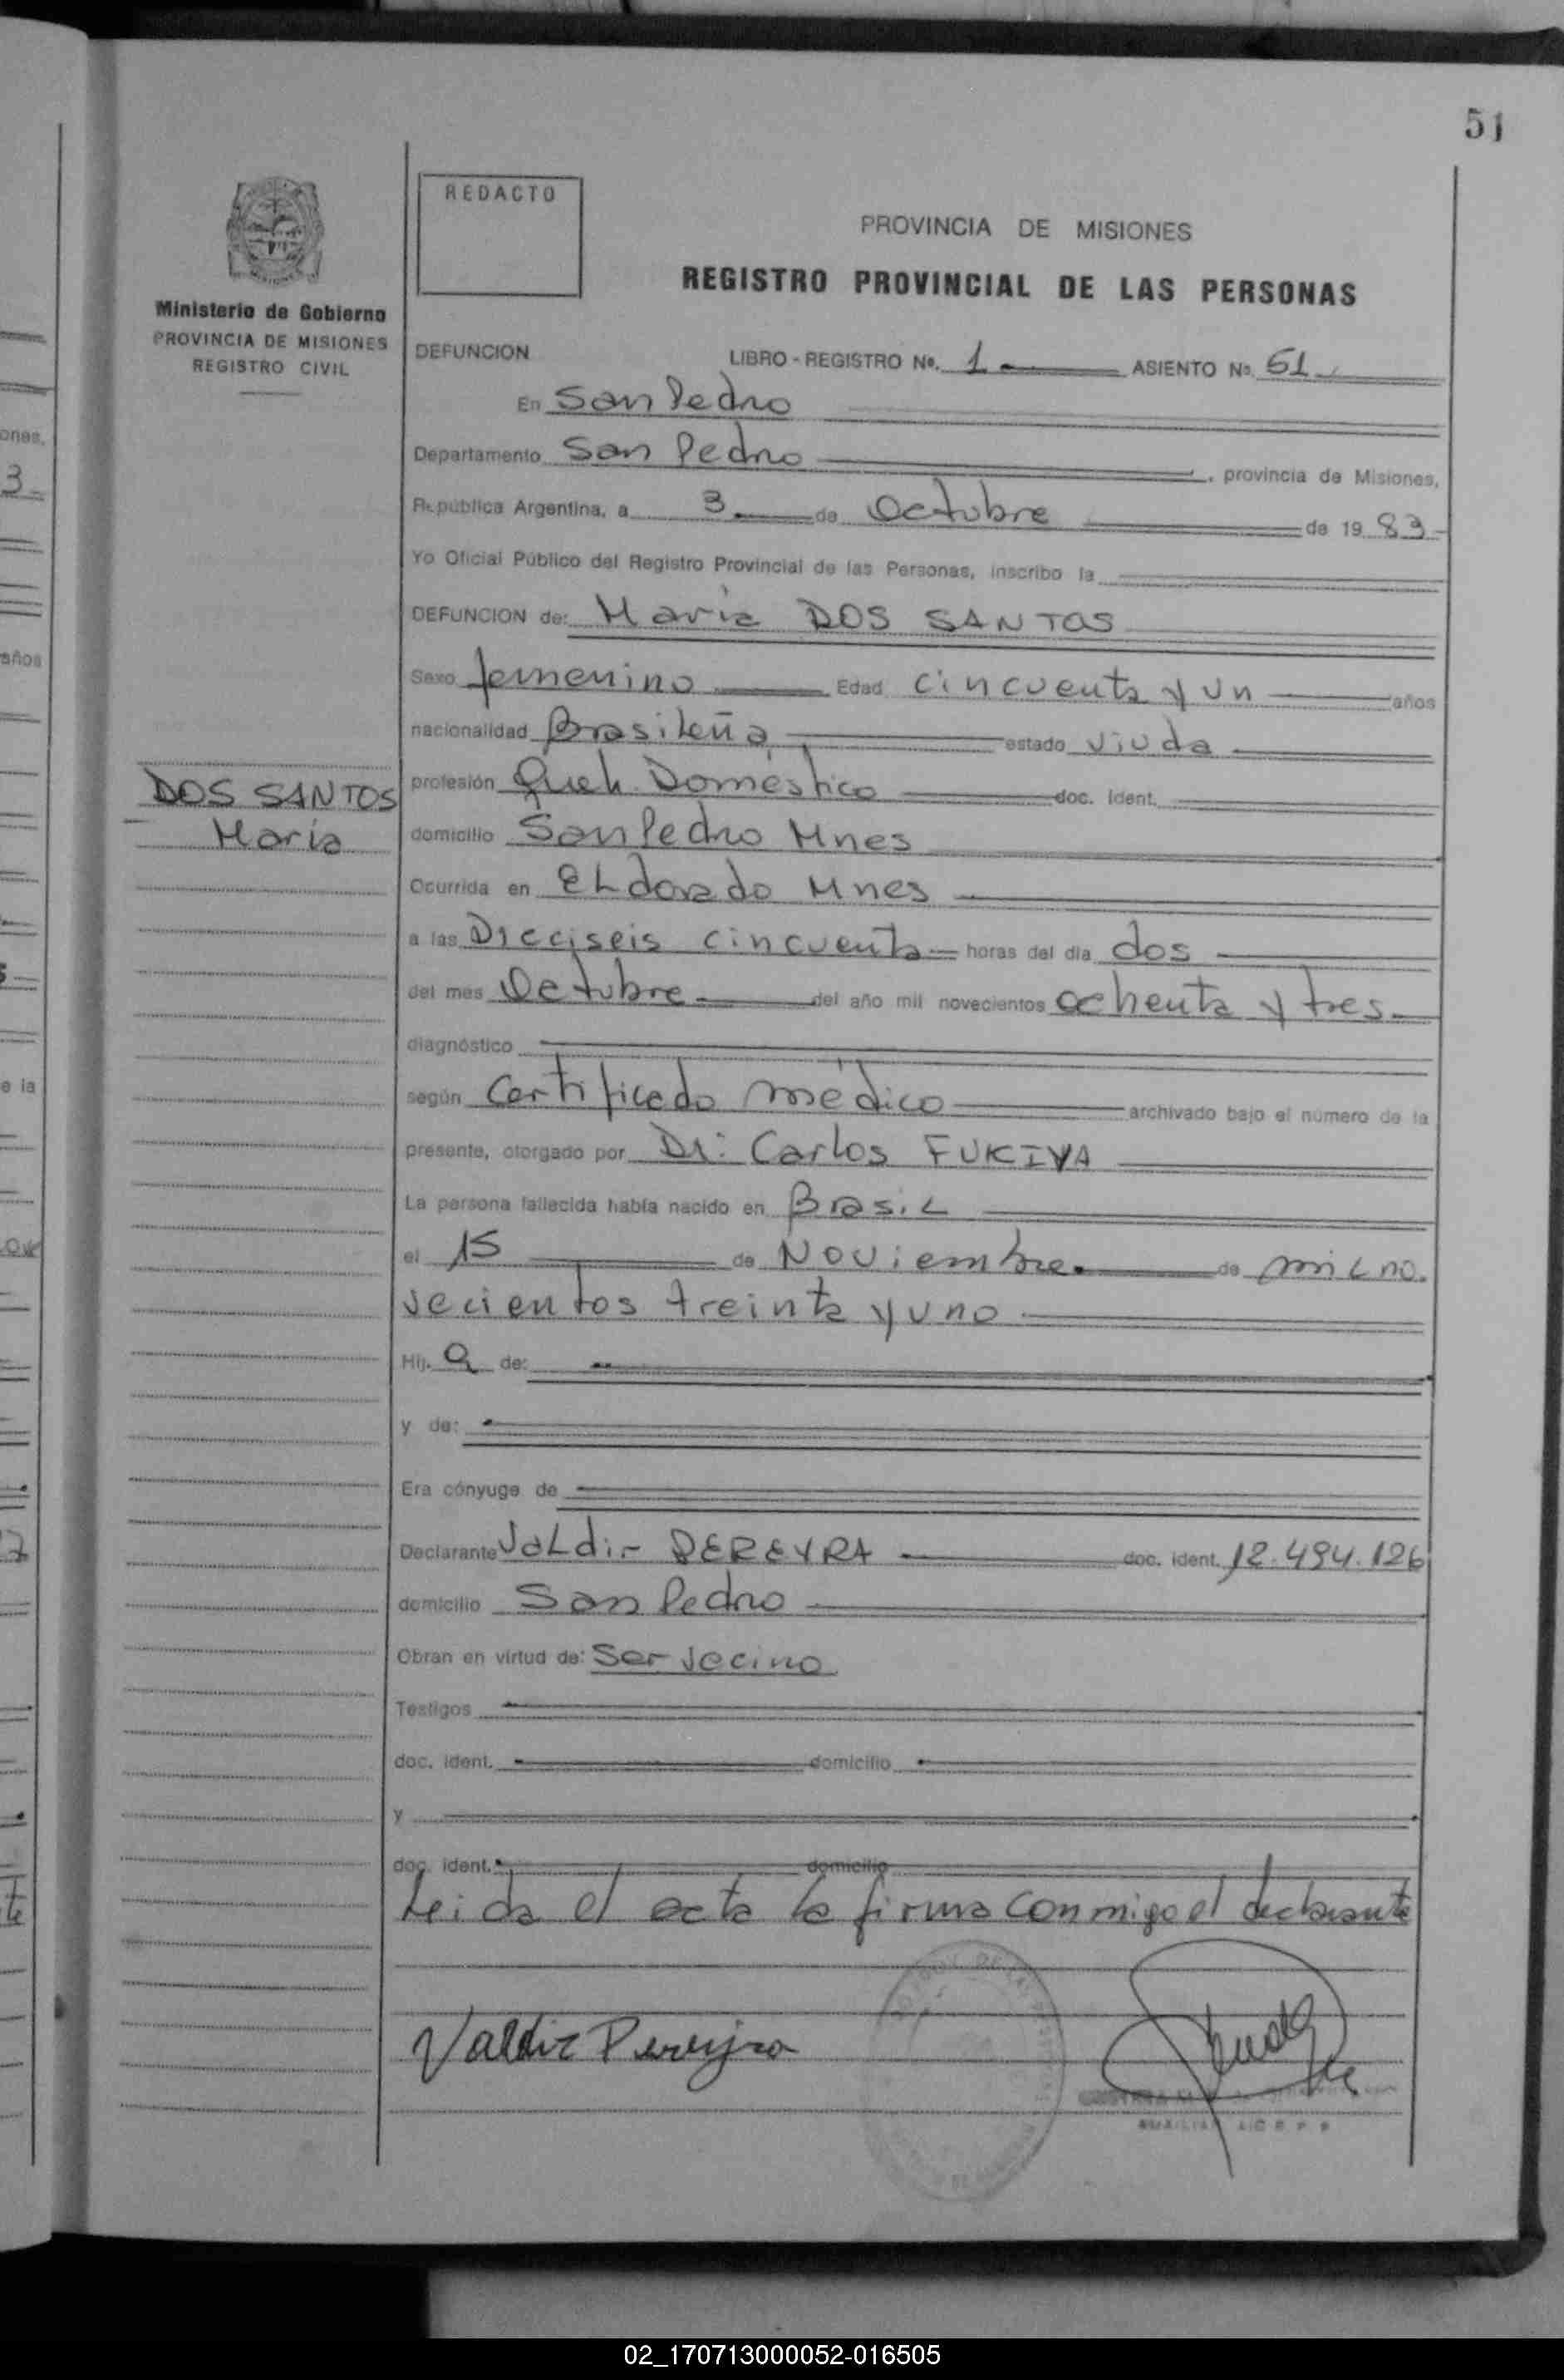 51
REDACTO
PROVINCIA DE MISIONES
REGISTRO PROVINCIAL DE LAS PERSONAS
Ministerio de Gobierno
PROVINCIA DE MISIONES
REGISTRO CIVIL
DEFUNCION LIBRO - REGISTRO Nº. 1 ASIENTO Nº. 51
En San Pedro
Departamento San Pedro, provincia de Misiones,
República Argentina, a 3 de Octubre de 19 83
Yo Oficial Público del Registro Provincial de las Personas, inscribo la
DEFUNCION de: María DOS SANTOS
Sexo femenino Edad cincuenta y un años
nacionalidad Brasileña estado viuda
DOS SANTOS
María
profesión Queh. Doméstico doc. ident.
domicilio San Pedro Mnes
Ocurrida en ELdorado Mnes
a las Dieciseis cincuenta horas del día dos
del mes Octubre del año mil novecientos ochenta y tres
diagnóstico
según Certificado médico archivado bajo el número de la
presente, otorgado por Dr: Carlos FUKIYA
La persona fallecida había nacido en BrasiL
el 15 de Noviembre de miL no.
vecientos treinta y uno
Hij. a de:
y de:
Era cónyuge de
Declarante VaLdir PEREYRA doc. ident. 12.494.126
domicilio San Pedro
Obran en virtud de: Ser vecino
Testigos
doc. ident. domicilio
y
doc. ident. domicilio
Leida el acta la firma conmigo el declarante
Valdir Pereyra
02_170713000052-016505